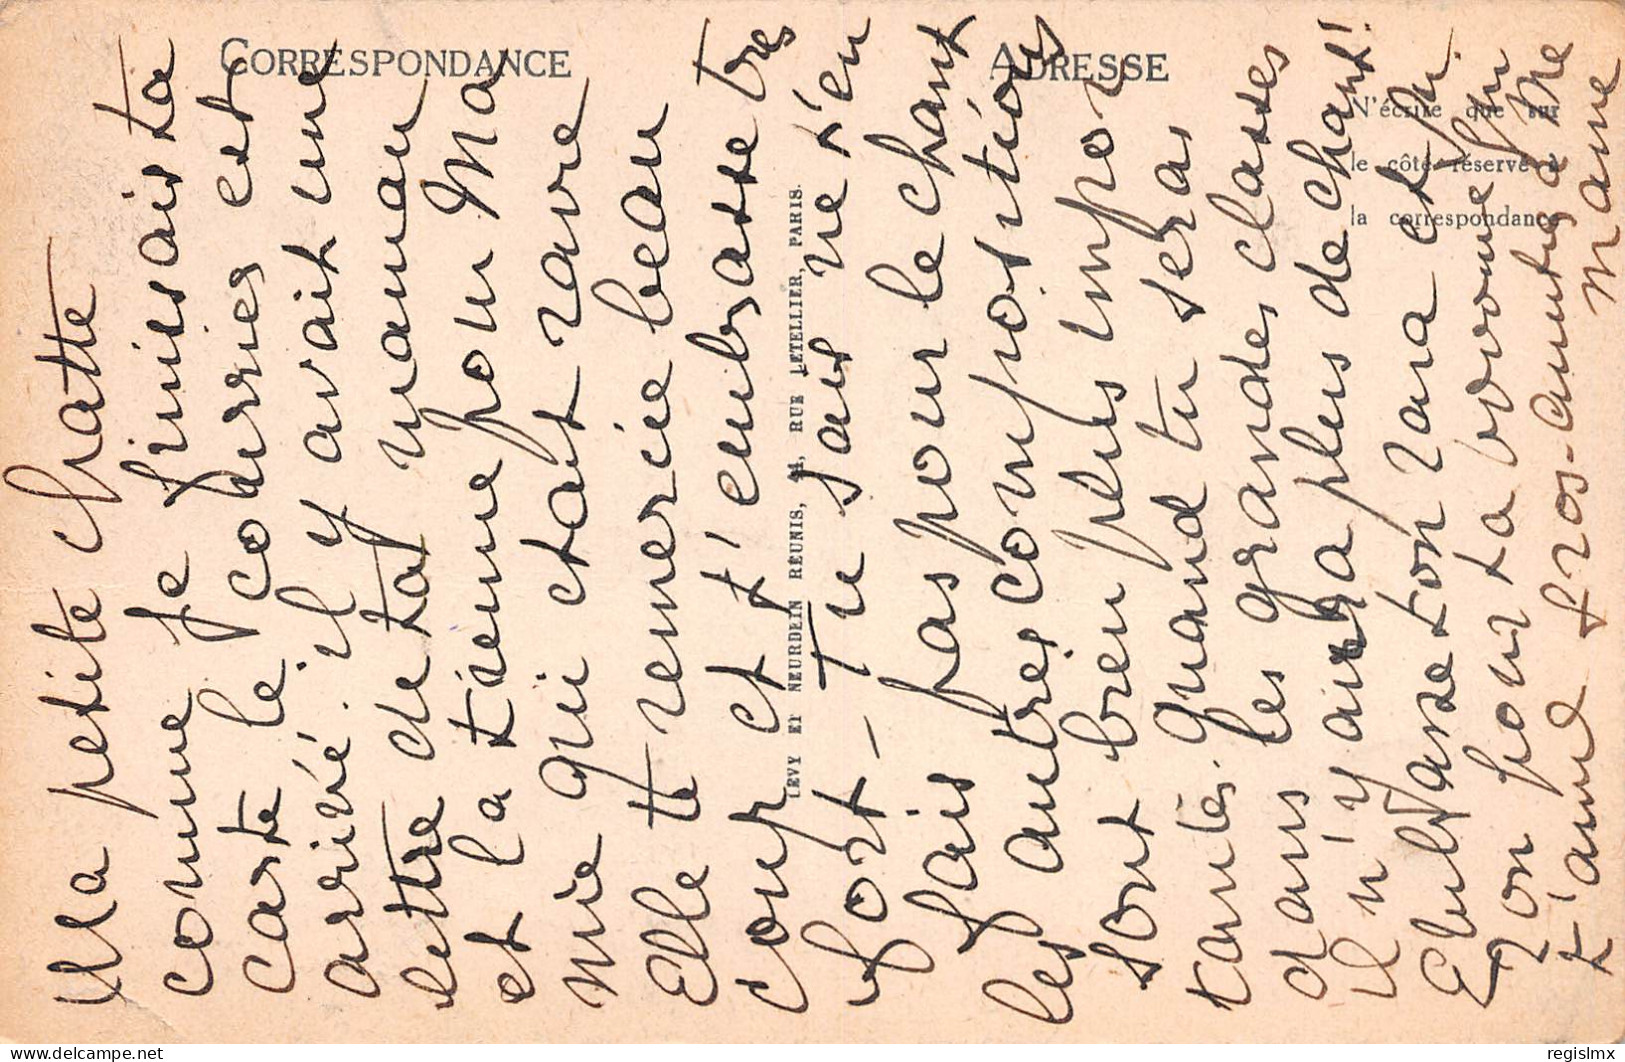 CORRESPONDANCE
ADRESSE
N'écrire que sur
le côté réservé à
la correspondance
LÉVY ET NEURDEIN RÉUNIS, 44, RUE LETELLIER, PARIS.
Ma petite chatte
comme je finissais ta
carte le courrier est
arrivé. il y avait une
lettre de ta maman
et la tienne pour Ma
mie qui etait ravie
Elle te remercie beau
coup et t'embrasse très
fort - Tu sais ne t'en
fais pas pour le chant
les autres compositions
sont bien plus impor
tantes. quand tu seras
dans les grandes classes
il n'y aura plus de chant!
Embrasse ton Papa et
Zon pour ta bonne
t'aime gros. amitiés à Me
Marie
regislmx